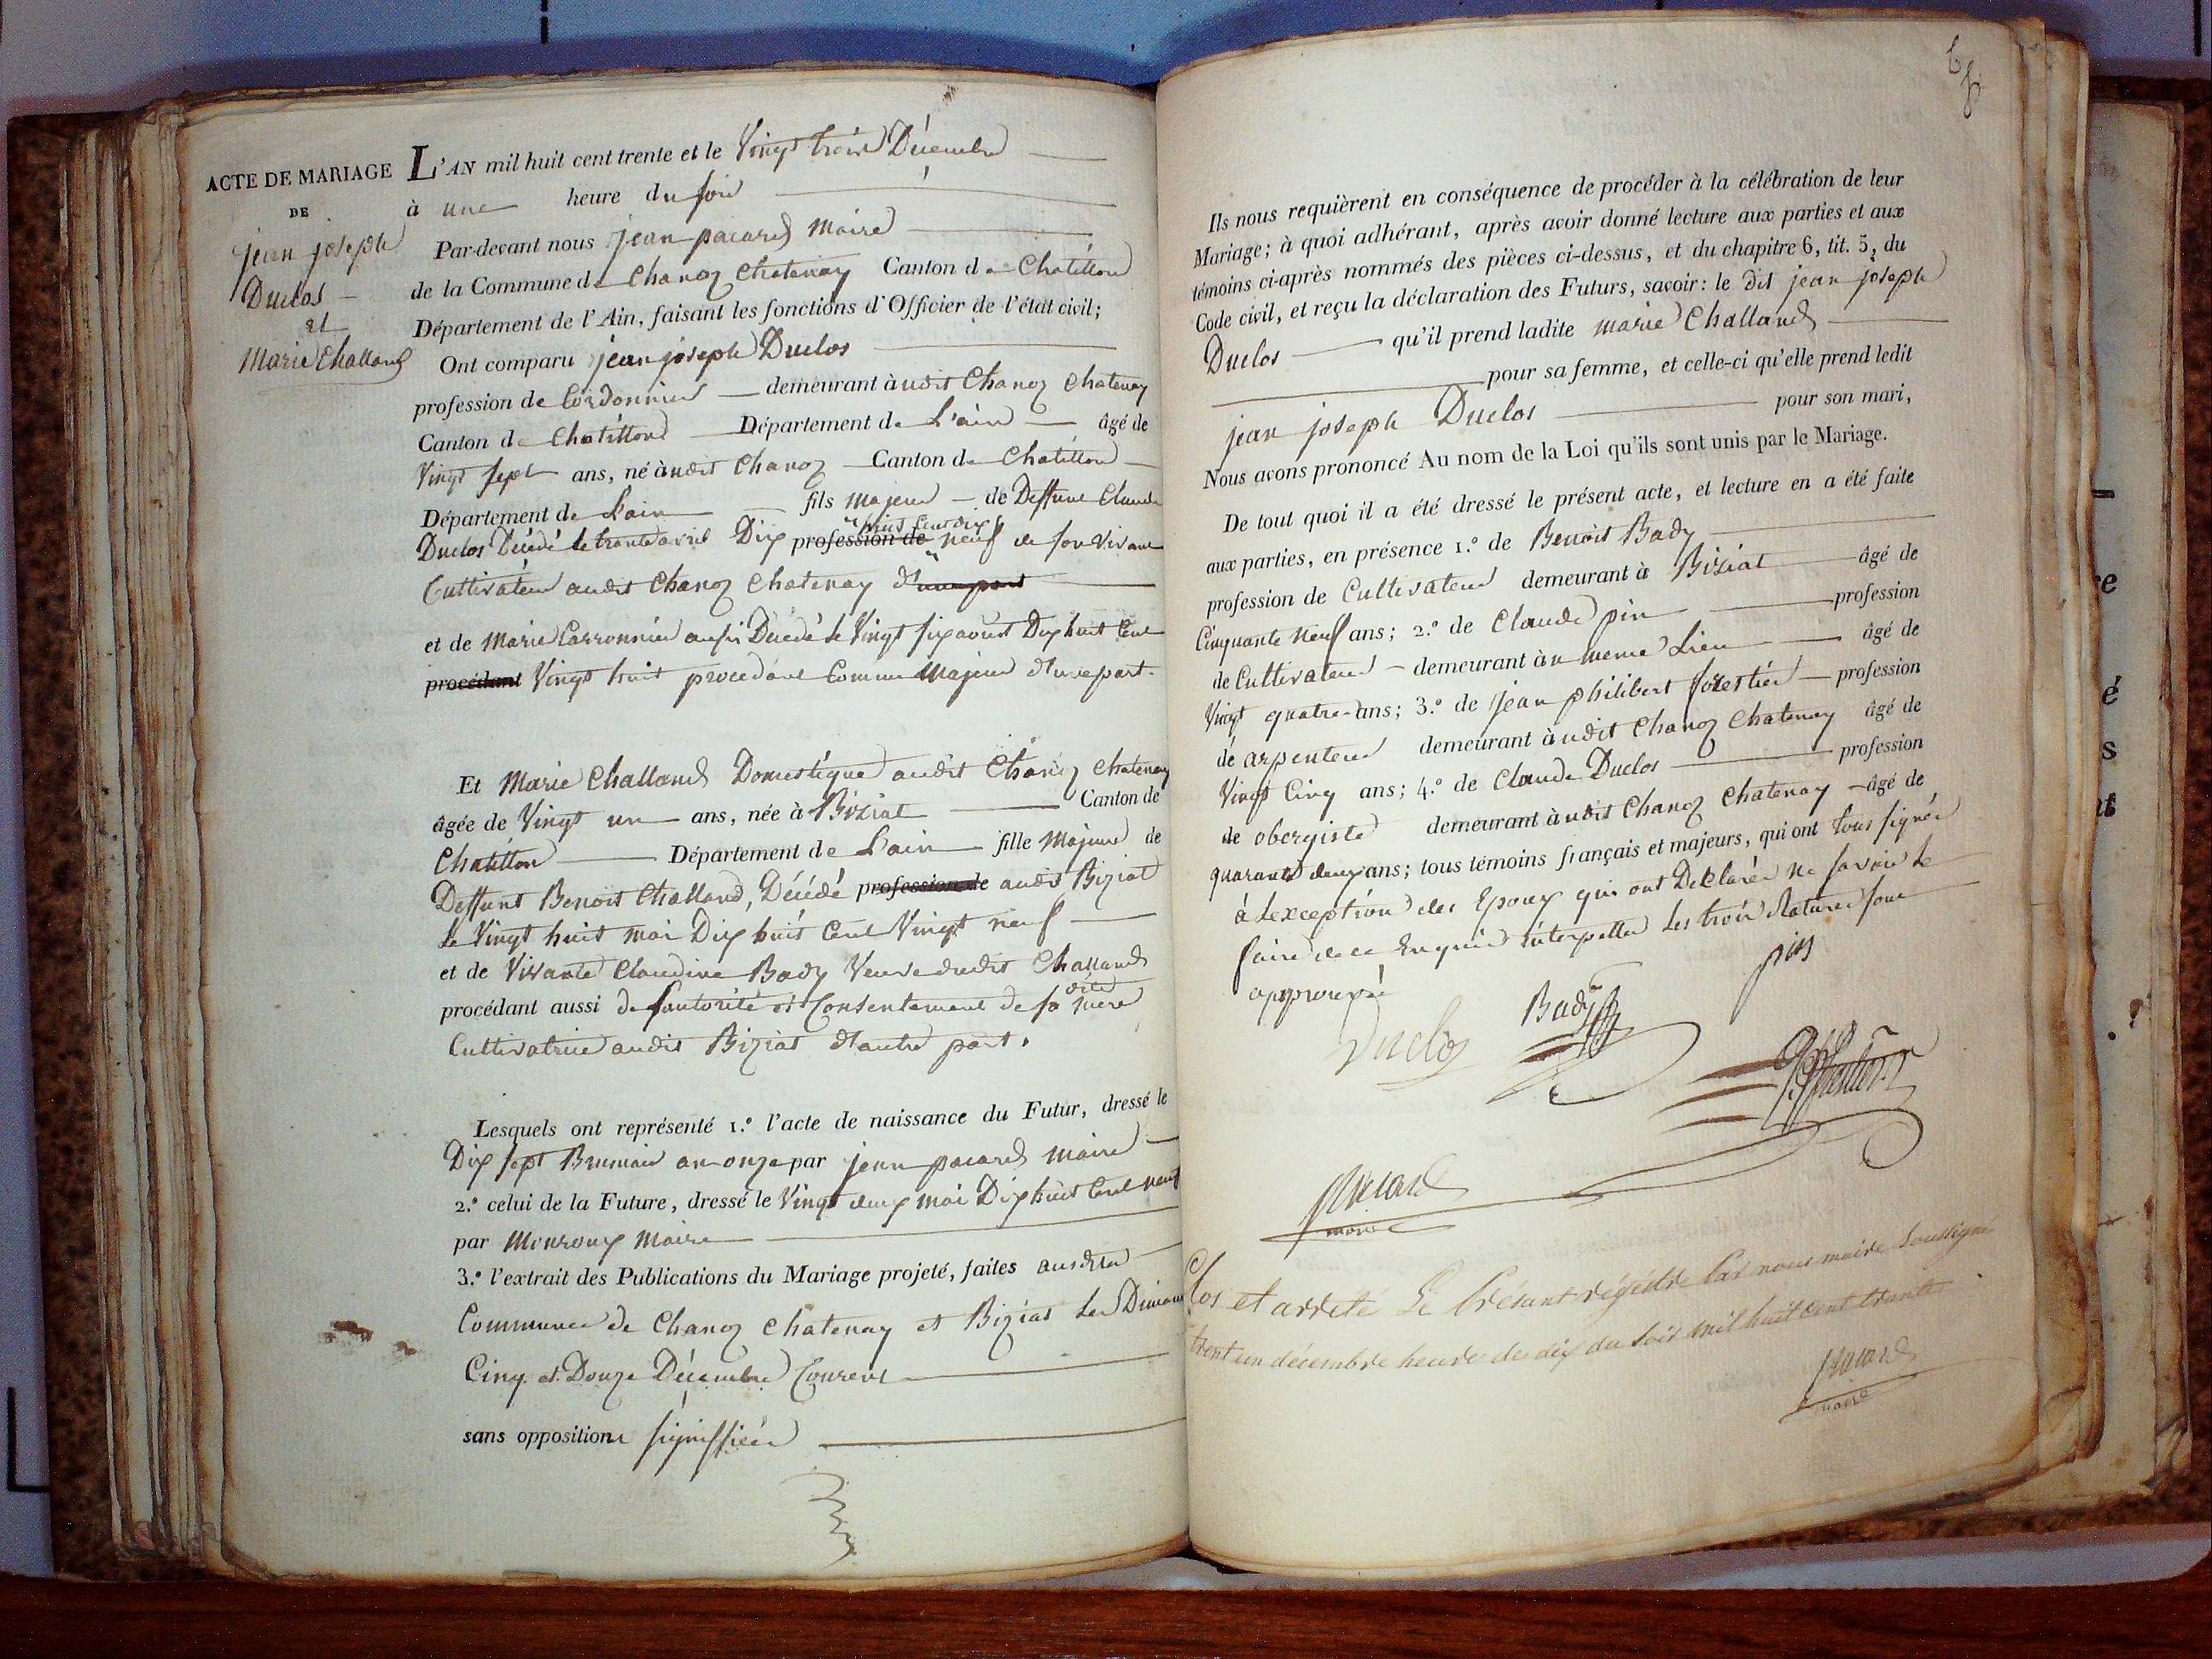 ACTE DE MARIAGE
DE
jean joseph
Duclos
et
Marie Challand
L'AN mil huit cent trente et le Vingt trois Décembre
à une heure du soir
Par-devant nous jean pacard Maire
de la Commune de Chanoz Chatenay Canton de Chatillon
Département de l'Ain, faisant les fonctions d'Officier de l'état civil;
Ont comparu jean joseph Duclos
profession de Cordonnier demeurant àudit Chanoz Chatenay
Canton de Chatillon Département de L'ain âgé de
Vingt sept ans, né àudit Chanoz Canton de Chatillon
Département de Lain fils majeur de Deffunt Claude
Duclos Décédé le trente avril Dix huit Cent dix profession de neuf de son Vivant
Cultivateur audit Chanoz Chatenay d'une part
et de Marie Carronnier aussi Décédé le Vingt six aoust Dix huit Cent
procédant Vingt huit procedant Comme Majeur d'une part.
Et Marie Challand Domestique audit Chanoz Chatenay
âgée de Vingt un ans, née à Biziat Canton de
Chatillon Département de Lain fille Majeure de
Deffunt Benoit Challand, Décédé profession de audit Biziat
Le Vingt huit mai Dix huit Cent Vingt neuf
et de Vivante Claudine Bady Veuve dudit Challand
procédant aussi de Lautorité et Consentement de sa dite mere
Cultivatrice audit Biziat d'autre part.
Lesquels ont représenté 1.º l'acte de naissance du Futur, dressé le
Dix sept Brumaire an onze par jean pacard maire
2.º celui de la Future, dressé le Vingt deux mai Dix huit Cent neuf
par Monroux Maire
3.º l'extrait des Publications du Mariage projeté, faites ausdites
Communes de Chanoz Chatenay et Biziat Les Dimanches
Cinq et Douze Décembre Courent
sans oppositions signiffiées
Ils nous requièrent en conséquence de procéder à la célébration de leur
Mariage; à quoi adhérant, après avoir donné lecture aux parties et aux
témoins ci-après nommés des pièces ci-dessus, et du chapitre 6, tit. 5, du
Code civil, et reçu la déclaration des Futurs, savoir: le dit jean joseph
Duclos qu'il prend ladite marie Challand
pour sa femme, et celle-ci qu'elle prend ledit
jean joseph Duclos pour son mari,
Nous avons prononcé Au nom de la Loi qu'ils sont unis par le Mariage.
De tout quoi il a été dressé le présent acte, et lecture en a été faite
aux parties, en présence 1.º de Benoit Bady
profession de Cultivateur demeurant à Biziat âgé de
Cinquante neuf ans; 2.º de Claude pin profession
de Cultivateur demeurant àu meme Lieu âgé de
Vingt quatre ans; 3.º de jean philibert forestier profession
de arpenteur demeurant àudit Chanoz Chatenay âgé de
Vingt Cinq ans; 4.º de Claude Duclos profession
de obergiste demeurant àudit Chanoz Chatenay âgé de
quarante deux ans; tous témoins français et majeurs, qui ont tous signés
à Lexception des Epoux qui ont Déclarés ne savoir le
faire de ce Enquis interpellés Les trois Ratures sont
approuvé
pin
Duclos
Bady
Forestier
Pacard
maire
Clos et arreté Le Présant régistre Par nous maire soussigné
trent un décembre heure de dix du soir mil huit cent trante
Pacard
maire